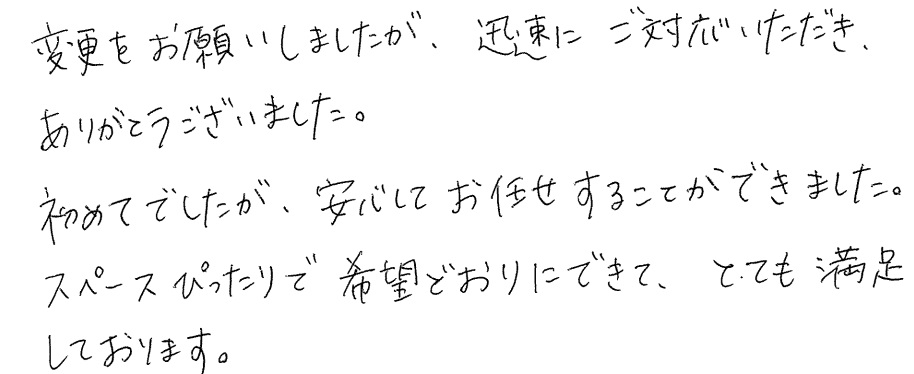 変更をお願いしましたが、迅速にご対応いただき、
ありがとうございました。
初めてでしたが、安心してお任せすることができました。
スペースぴったりで希望どおりにできて、とても満足
しております。